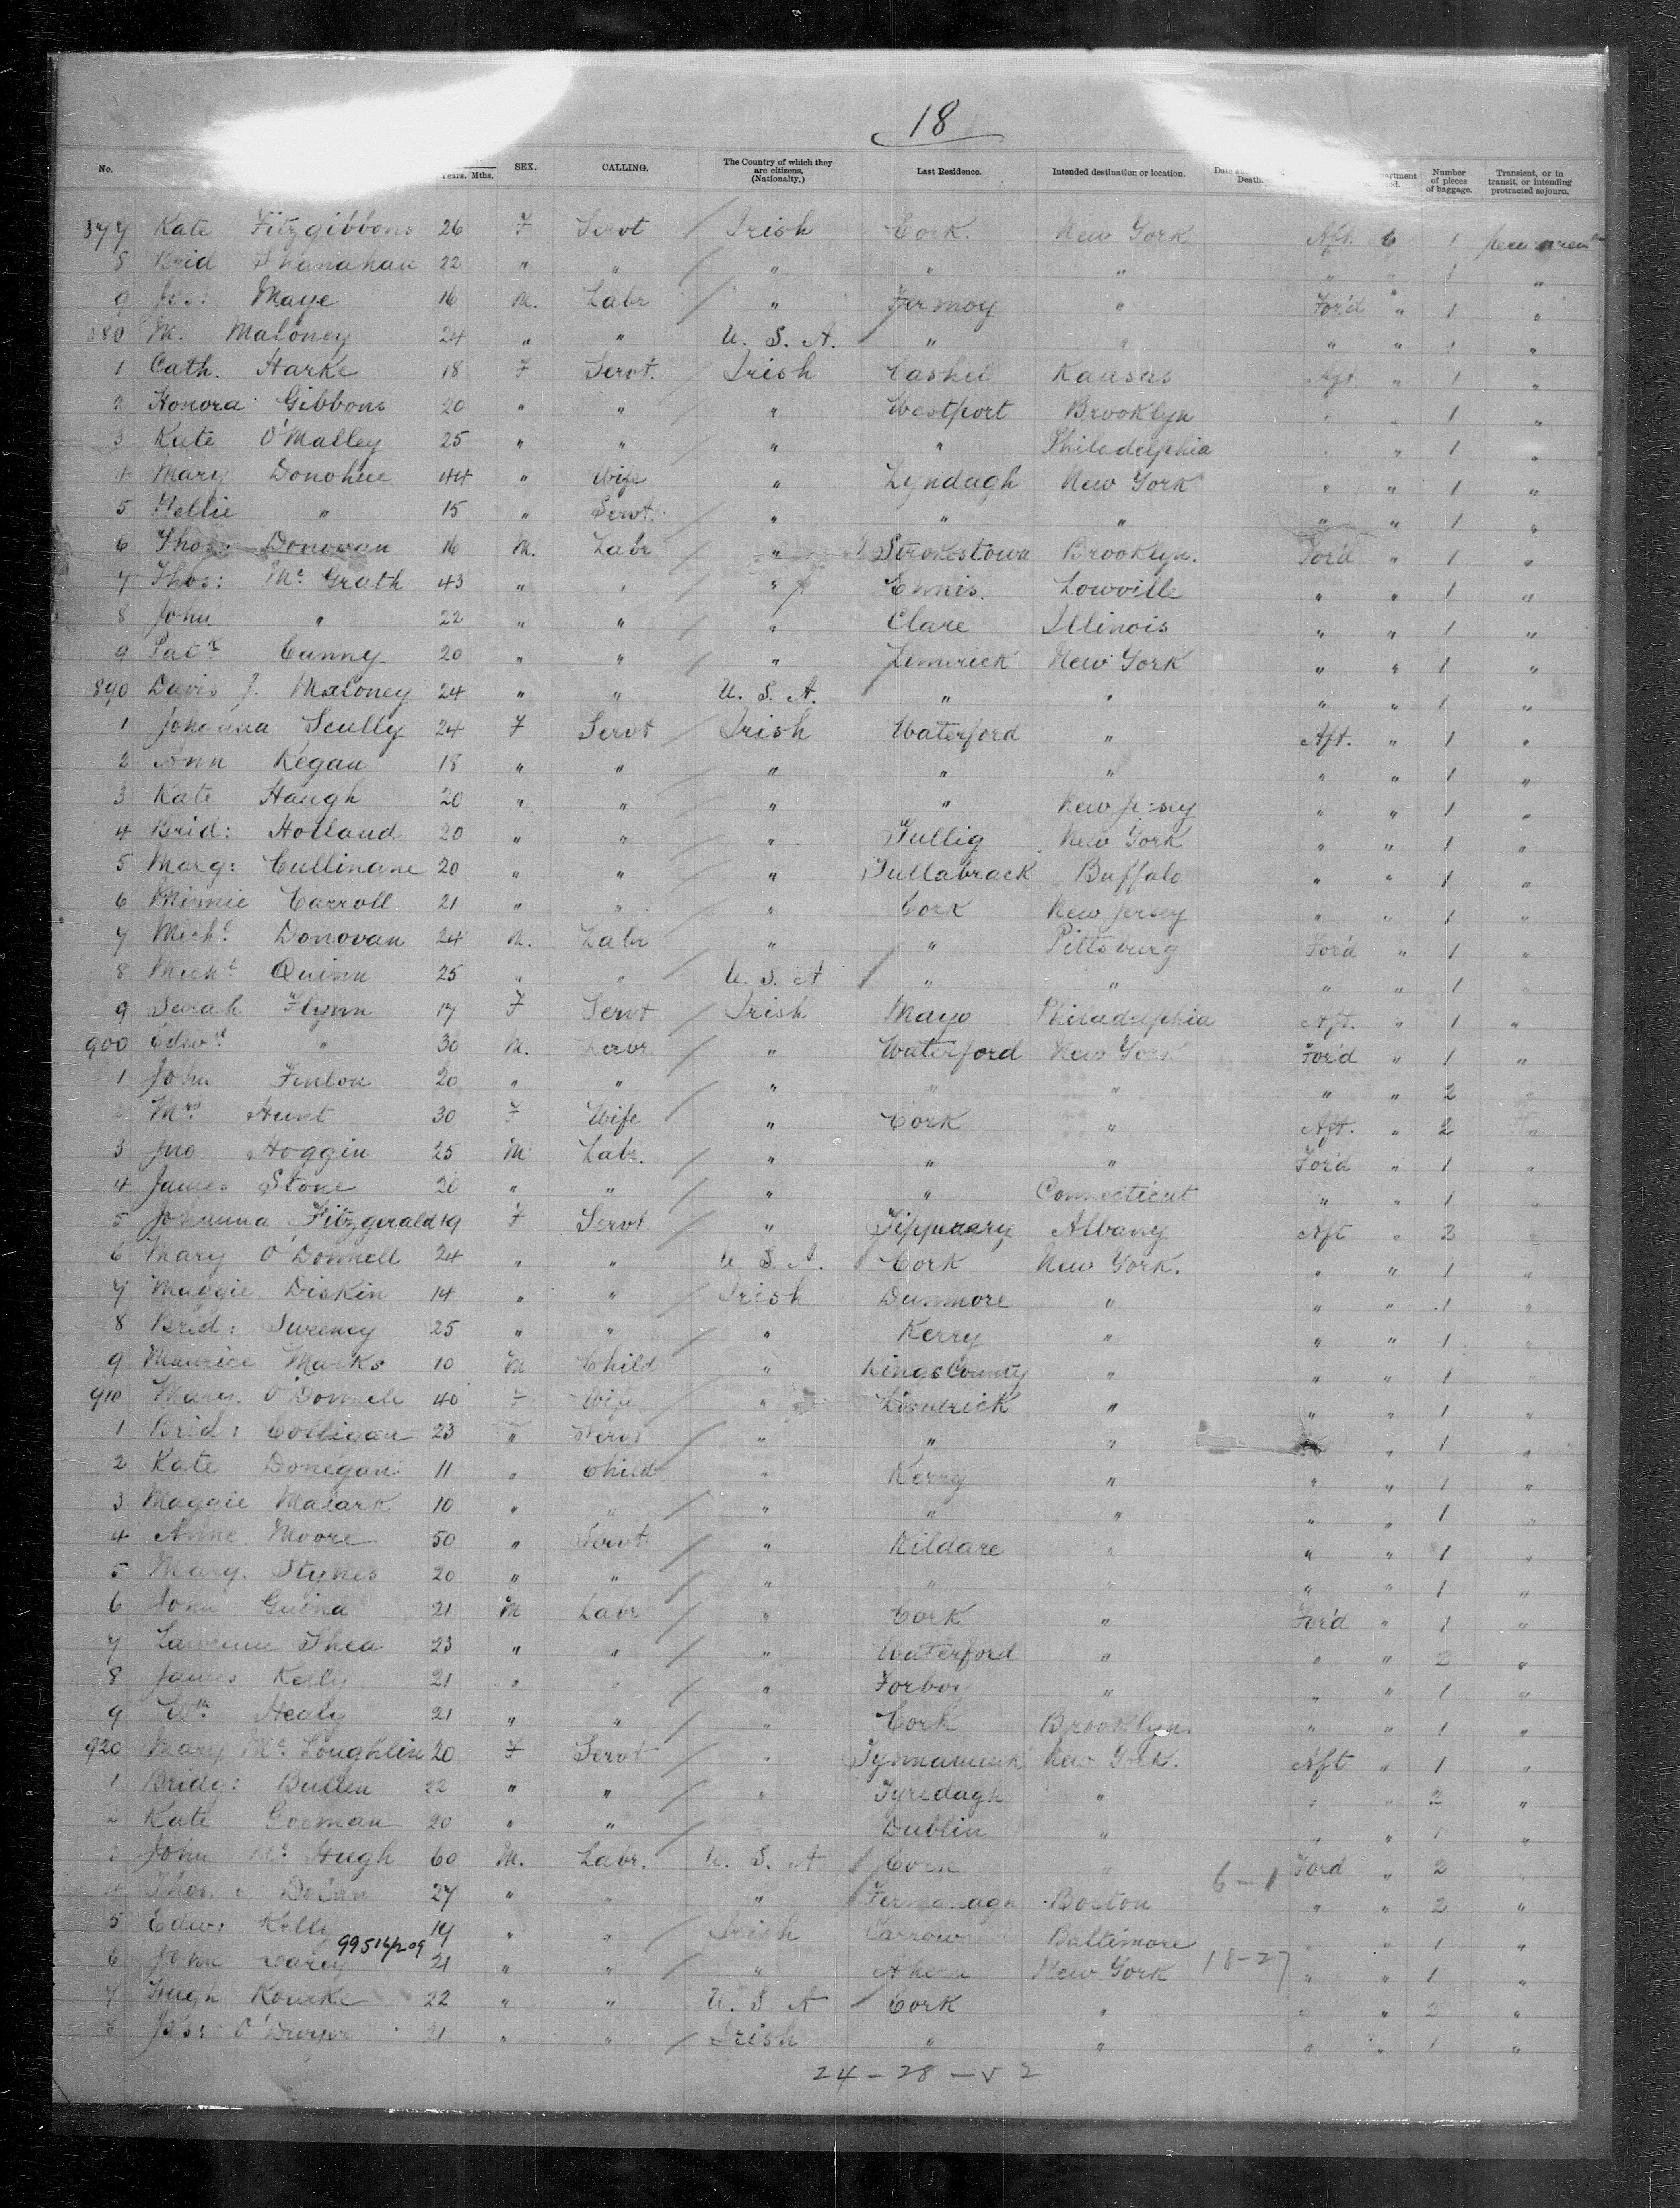 18
No. Years. Mths. SEX. CALLING. The Country of which they are citizens. (Nationalty.) Last Residence. Intended destination or location. Number of pieces of baggage. Transient, or in transit, or intending protracted sojourn.
877 Kate Fitzgibbons 26 F Servt / Irish Cork. New York Aft. 6 1
8 Brid Shanahan 22 " " / " " " " " 1 "
9 Jos: Maye 16 M. Labr / " Fermoy " For'd " 1 "
880 M. Maloney 24 " " U. S. A. " " " " 1 "
1 Cath. Harke 18 F Servt. / Irish Cashel Kansas Aft. " 1 "
2 Honora Gibbons 20 " " / " Westport Brooklyn " " 1 "
3 Kate O'Malley 25 " " / " " Philadelphia " " 1 "
4 Mary Donohue 44 " Wife " Lyndagh New York " " 1 "
5 Nellie " 15 " Servt. / " " " " " 1 "
6 Thos: Donovan 16 M. Labr / " Strokestown Brooklyn. For'd " 1 "
7 Thos: Mc Grath 43 " " " Ennis. Lowville " " 1 "
8 John " 22 " " / " Clare Illinois " " 1 "
9 Patk Canny 20 " " / " Limerick New York " " 1 "
890 Davis J. Maloney 24 " " U. S. A. " " " " 1 "
1 Johanna Scully 24 F Servt / Irish Waterford " Aft. " 1 "
2 Ann Kegan 18 " " / " " " " " 1 "
3 Kate Haugh 20 " " / " " New Jersey " " 1 "
4 Brid: Holland 20 " " / " Tullig New York " " 1 "
5 Marg: Cullinane 20 " " / " Tullabrack Buffalo " " 1 "
6 Minnie Carroll 21 " " / " Cork New Jersey " " 1 "
7 Michl Donovan 24 M. Labr / " " Pittsburg For'd " 1 "
8 Michl Quinn 25 " " U. S. A " " " " 1 "
9 Sarah Flynn 17 F Servt / Irish Mayo Philadelphia Aft. " 1 "
900 Edwd " 30 M. / " Waterford New York For'd " 1 "
1 John Fenlon 20 " " / " " " " " 2 "
2 Mrs Hunt 30 F Wife " Cork " Aft. " 2 "
3 Jno Hoggin 25 M Labr. / " " " For'd " 1 "
4 James Stone 20 " " / " " Connecticut " " 1 "
5 Johanna Fitzgerald 19 F Servt / " Tipperary Albany Aft " 2 "
6 Mary O'Donnell 24 " " U. S. A. Cork New York. " " 1 "
7 Maggie Diskin 14 " " / Irish Dunmore " " " 1 "
8 Brid: Sweeney 25 " " / " Kerry " " " 1 "
9 Maurice Marks 10 M Child " Kings County " " " 1 "
910 Mary. O'Donnell 40 F Wife " Limerick " " " 1 "
1 Brid: Colligan 23 " Servt / " " " " 1 "
2 Kate Donegan 11 " Child " Kerry " " " 1 "
3 Maggie Malark 10 " " / " " " " " 1 "
4 Anne Moore 50 " Servt / " Kildare " " " 1 "
5 Mary. Stynes 20 " " / " " " " " 1 "
6 John 21 M Labr / " Cork " For'd " 1 "
7 Lawrence Shea 23 " " / " Waterford " " " 2 "
8 James Kelly 21 " " / " Forboy " " " 1 "
9 Wm Healy 21 " " / " Cork Brooklyn " " 1 "
920 Mary Mc Loughlin 20 F Servt / " New York. Aft " 1 "
1 Bridg: Bullen 22 " " / " Tyredagh " " " 2 "
2 Kate Gooman 20 " " / Dublin " " " 1 "
3 John Mc Hugh 60 M. Labr. U. S. A Cork " 6-1 Ford " 2 "
4 Thos. Dolan 27 " " " Fermanagh Boston " " 2 "
5 Edw: Kelly 19 " " / Irish Baltimore " " 1 "
99516/209
6 John 21 " " / " Ahern New York 18-27 " " 1 "
7 Hugh Rourke 22 " " U. S. A Cork " " " 2 "
8 Jas: O'Dwyer 21 " " / Irish " " " " 1 "
24 - 28 - 52